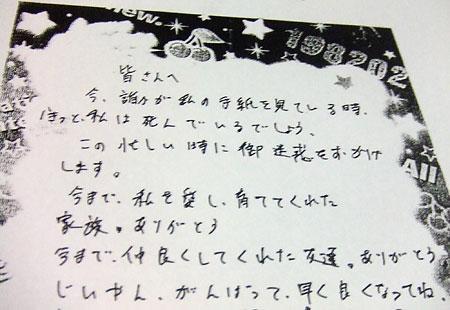 new.
198202
皆さんへ
今、誰かが私の手紙を見ている時、
きっと、私は死んでいるでしょう。
この忙しい時に御迷惑をおかけ
します。
今まで、私を愛し、育ててくれた
家族。ありがとう
今まで、仲良くしてくれた友達。ありがとう
じいやん、がんばって、早く良くなってね。
All